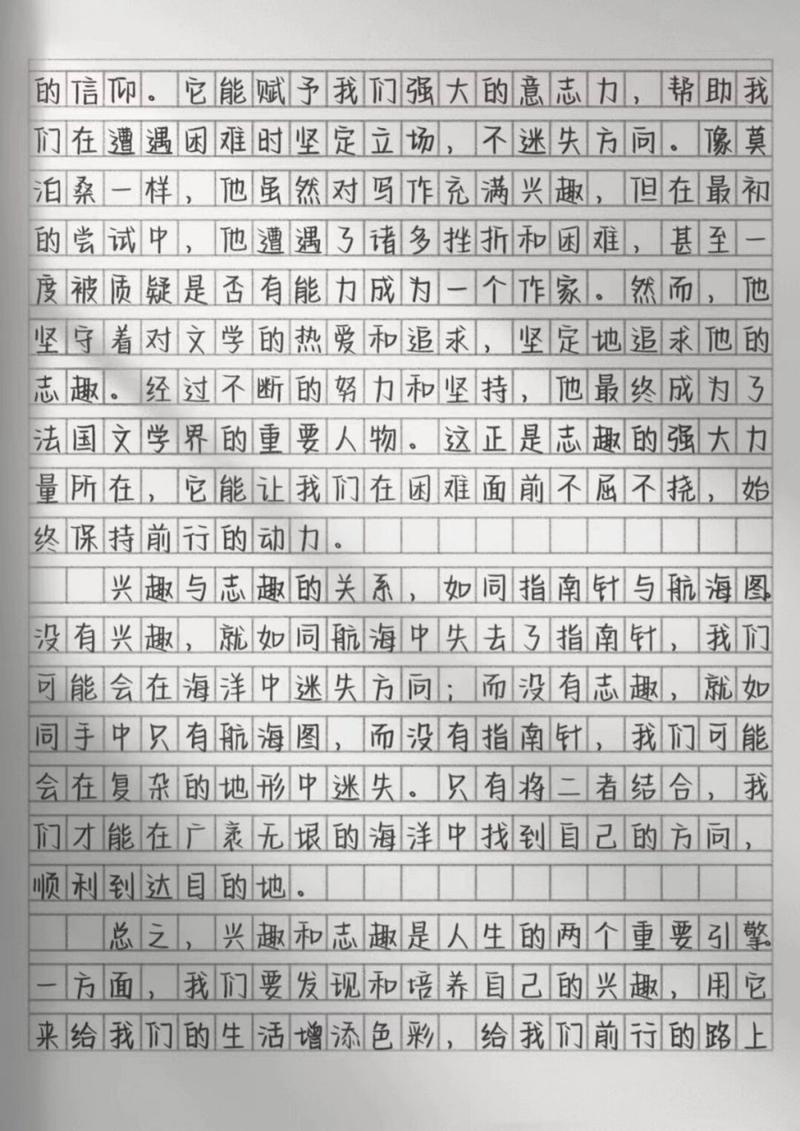 的信仰。它能赋予我们强大的意志力，帮助我
们在遭遇困难时坚定立场，不迷失方向。像莫
泊桑一样，他虽然对写作充满兴趣，但在最初
的尝试中，他遭遇了诸多挫折和困难，甚至一
度被质疑是否有能力成为一个作家。然而，他
坚守着对文学的热爱和追求，坚定地追求他的
志趣。经过不断的努力和坚持，他最终成为了
法国文学界的重要人物。这正是志趣的强大力
量所在，它能让我们在困难面前不屈不挠，始
终保持前行的动力。
兴趣与志趣的关系，如同指南针与航海图。
没有兴趣，就如同航海中失去了指南针，我们
可能会在海洋中迷失方向；而没有志趣，就如
同手中只有航海图，而没有指南针，我们可能
会在复杂的地形中迷失。只有将二者结合，我
们才能在广袤无垠的海洋中找到自己的方向，
顺利到达目的地。
总之，兴趣和志趣是人生的两个重要引擎。
一方面，我们要发现和培养自己的兴趣，用它
来给我们的生活增添色彩，给我们前行的路上